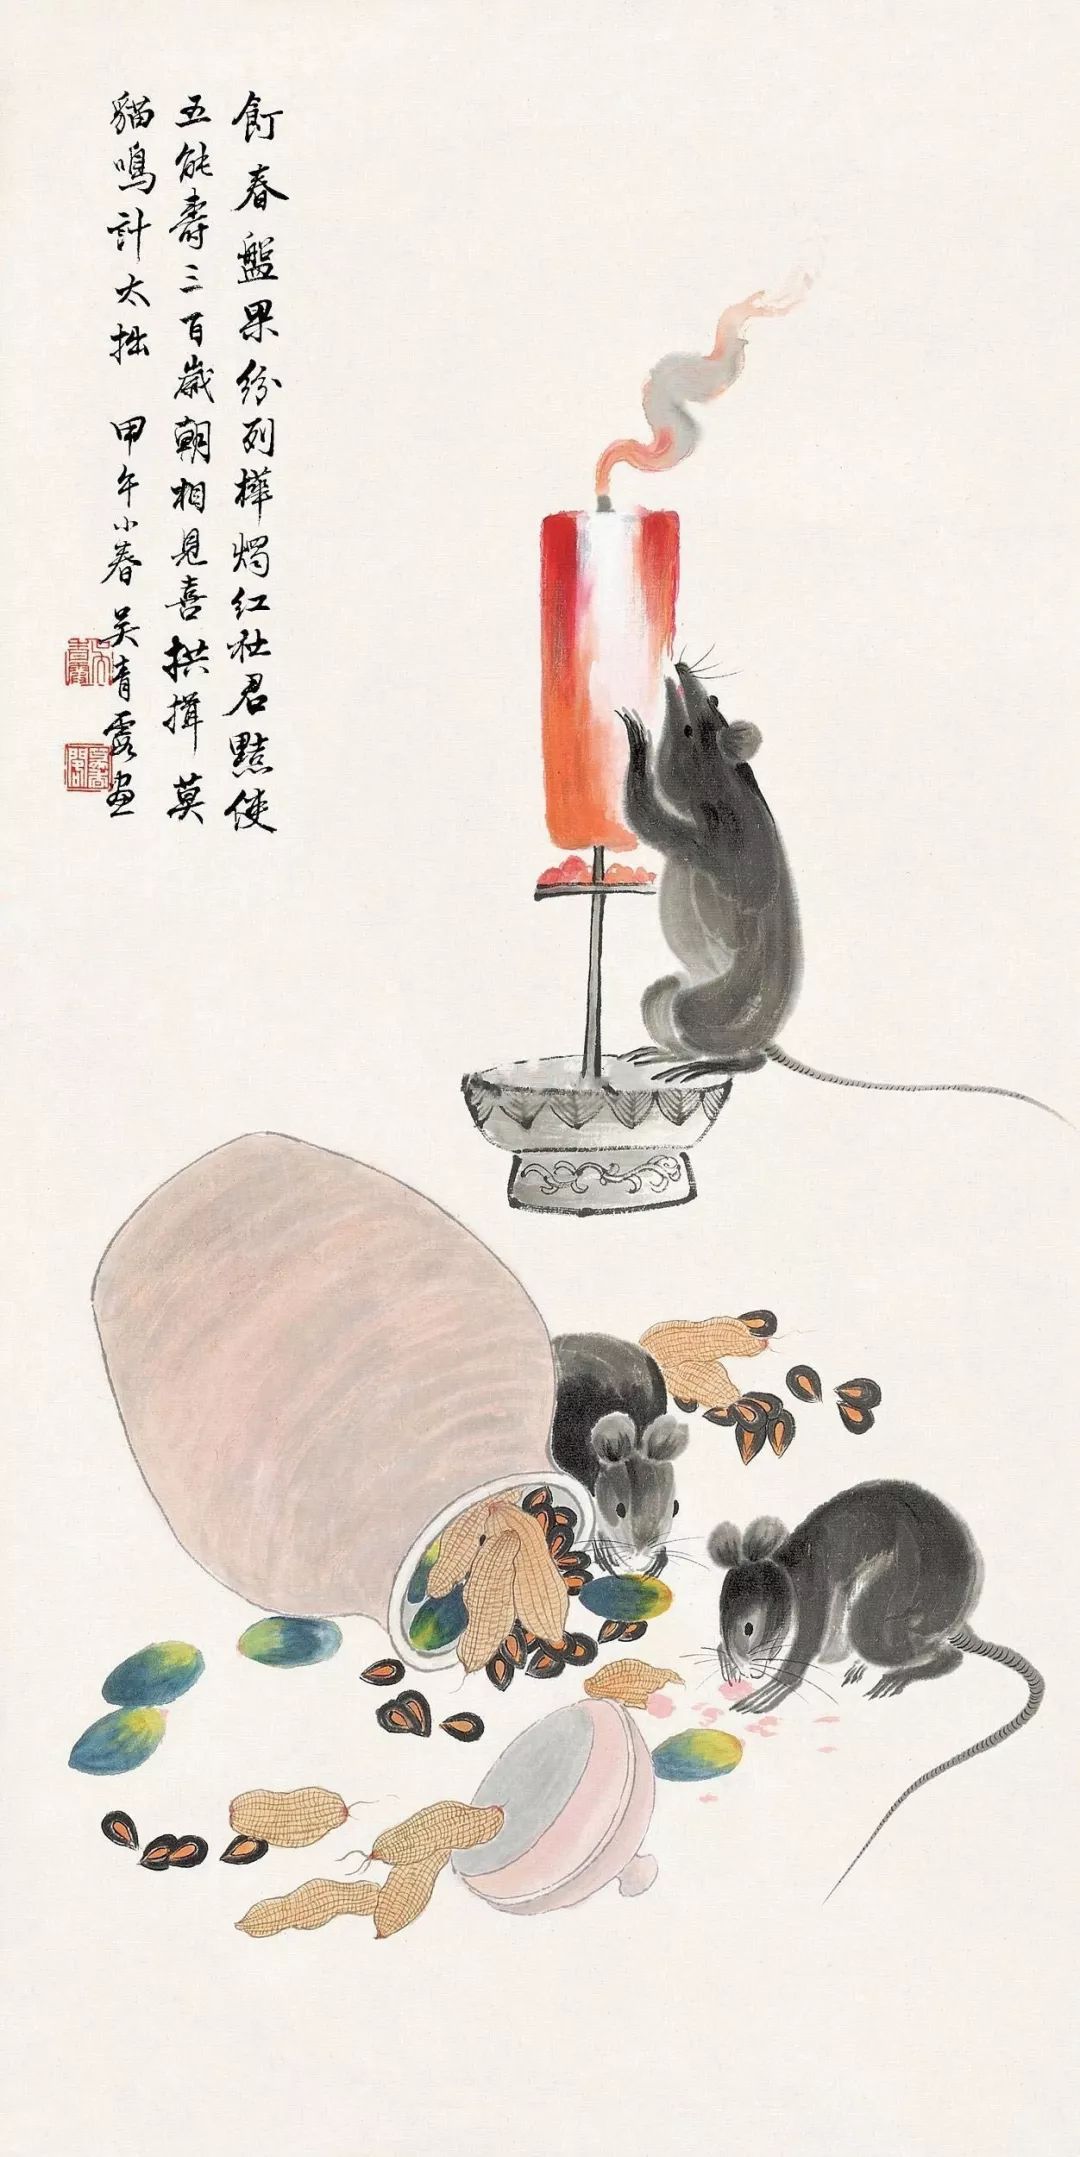 飣春盤果紛列樺燭紅社君黠使
五能壽三百歲朝相見喜拱揖莫
貓鳴計太拙 甲午小春 吳青霞畫
吳
青霞